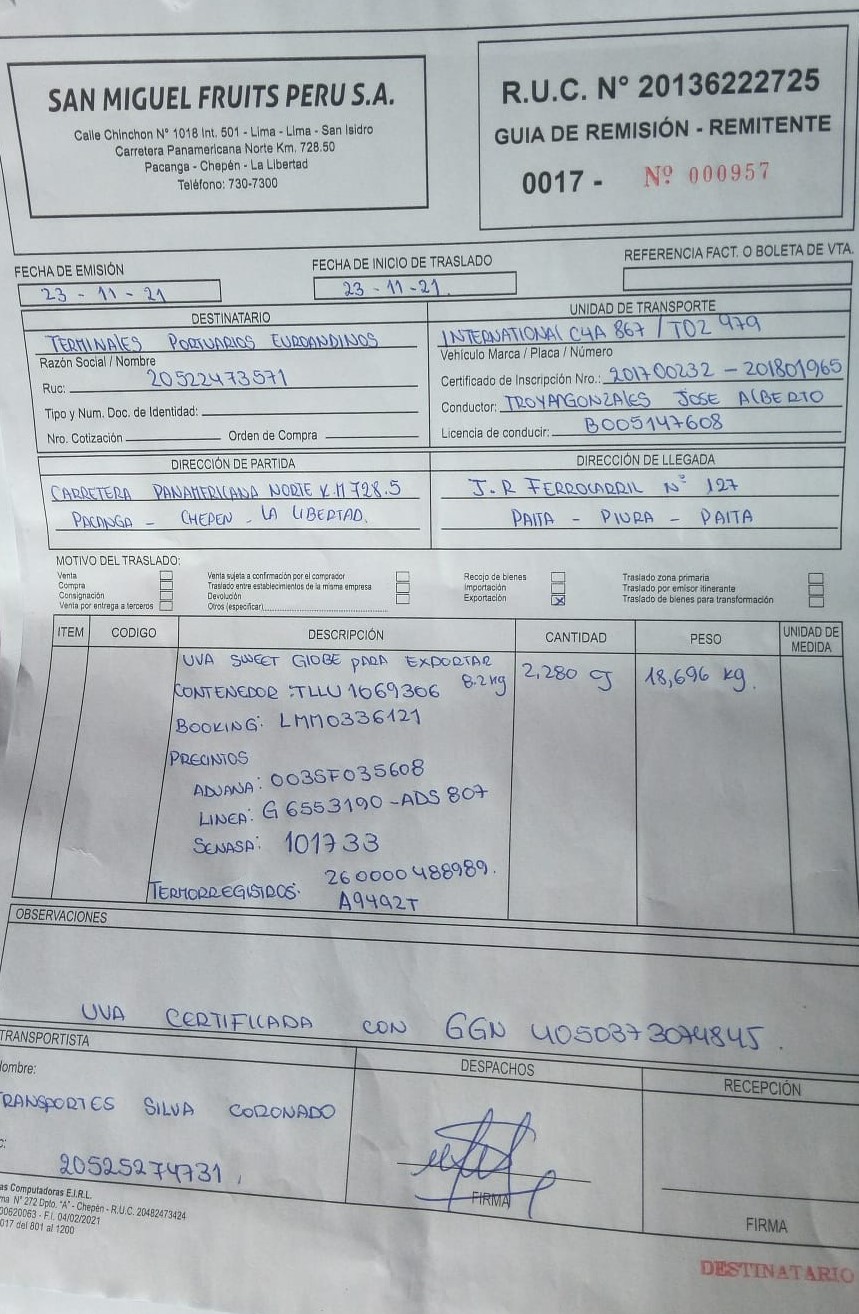 SAN MIGUEL FRUITS PERU S.A.
Calle Chinchon N° 1018 Int. 501 - Lima - Lima - San Isidro
Carretera Panamericana Norte Km. 728.50
Pacanga - Chepén - La Libertad
Teléfono: 730-7300
R.U.C. N° 20136222725
GUIA DE REMISIÓN - REMITENTE
0017 - Nº 000957
FECHA DE EMISIÓN
23 - 11 - 21
FECHA DE INICIO DE TRASLADO
23 - 11 - 21.
REFERENCIA FACT. O BOLETA DE VTA.
DESTINATARIO
TERMINALES PORTUARIOS EUROANDINOS
Razón Social / Nombre
Ruc: 20522473571
Tipo y Num. Doc. de Identidad:
Nro. Cotización Orden de Compra
UNIDAD DE TRANSPORTE
INTERNATIONAL C4A 867 / TOZ 979
Vehículo Marca / Placa / Número
Certificado de Inscripción Nro.: 201700232 - 201801965
Conductor: TROYANGONZALES JOSE ALBERTO
Licencia de conducir: B005147608
DIRECCIÓN DE PARTIDA
CARRETERA PANAMERICANA NORTE K.M 728.5
PACANGA - CHEPEN - LA LIBERTAD.
DIRECCIÓN DE LLEGADA
J.R FERROCARRIL N° 127
PAITA - PIURA - PAITA
MOTIVO DEL TRASLADO:
Venta
Compra
Consignación
Venta por entrega a terceros
Venta sujeta a confirmación por el comprador
Traslado entre establecimientos de la misma empresa
Devolución
Otros (especificar)
Recojo de bienes
Importación
Exportación X
Traslado zona primaria
Traslado por emisor itinerante
Traslado de bienes para transformación
ITEM CODIGO DESCRIPCIÓN CANTIDAD PESO UNIDAD DE MEDIDA
UVA SWEET GLOBE PARA EXPORTAR 8.2 kg 2,280 cj 18,696 kg.
CONTENEDOR : TLLU 1069306
BOOKING: LMM0336121
PRECINTOS
ADUANA: 003SF035608
LINEA: G 6553190 - ADS 807
SENASA: 101733
TERMORREGISTROS: 260000488989.
A9492T
OBSERVACIONES
UVA CERTIFICADA CON GGN 4050373074845.
TRANSPORTISTA
ombre:
RANSPORTES SILVA CORONADO
20525274731
DESPACHOS
FIRMA
RECEPCIÓN
FIRMA
as Computadoras E.I.R.L.
N° 272 Dpto. "A" - Chepén - R.U.C. 20482473424
00620063 - F.I. 04/02/2021
017 del 801 al 1200
DESTINATARIO